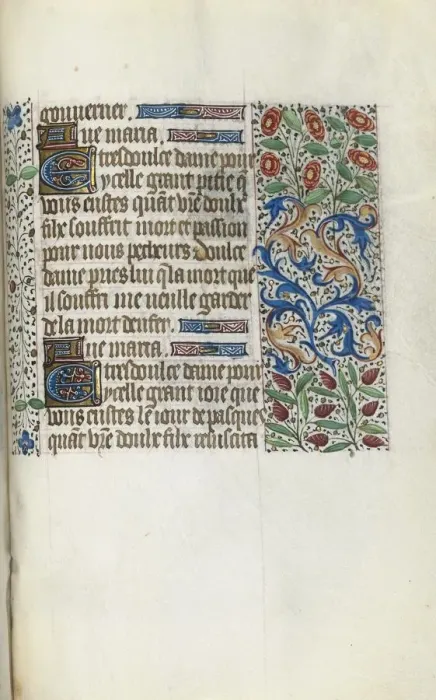 gouverner.
Aue maria.
E tresdoulce dame pour
ycelle grant pitie q̃
vous eustes quãt vr̃e doulx
filx souffrit mort et passion
pour nous pecheurs doulce
dame pries lui q̃ la mort que
il souffri me veulle garder
de la mort denfer.
Aue maria.
E tresdoulce dame pour
ycelle grant ioie que
vous eustes le iour de pasques
quãt vr̃e doulx filx resuscita